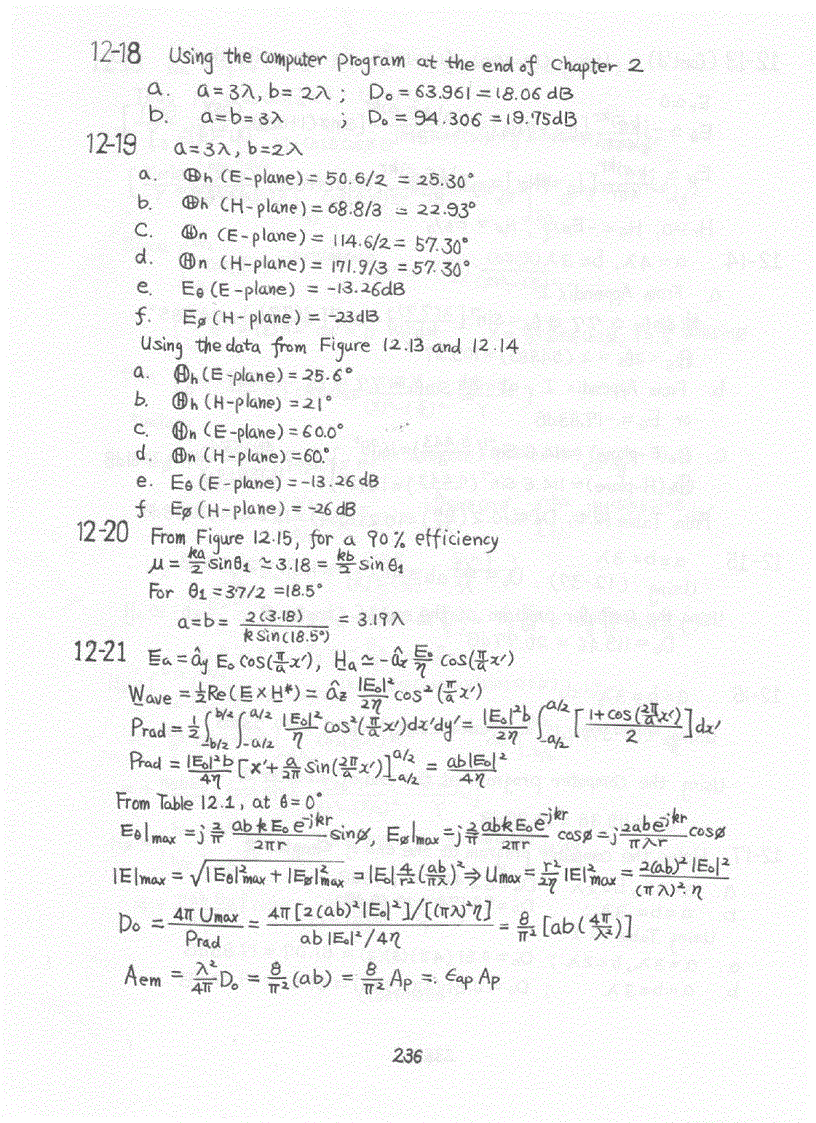 12-18 Using the computer program at the end of Chapter 2
a. a = 3λ, b = 2λ ; D₀ = 63.961 = 18.06 dB
b. a = b = 3λ ; D₀ = 94.306 = 19.75 dB
12-19 a = 3λ, b = 2λ
a. Ⓗh (E-plane) = 50.6/2 = 25.30°
b. Ⓗh (H-plane) = 68.8/3 = 22.93°
c. Ⓗn (E-plane) = 114.6/2 = 57.30°
d. Ⓗn (H-plane) = 171.9/3 = 57.30°
e. Eθ (E-plane) = -13.26dB
f. Eø (H-plane) = -23dB
Using the data from Figure 12.13 and 12.14
a. Ⓗh (E-plane) = 25.6°
b. Ⓗh (H-plane) = 21°
c. Ⓗn (E-plane) = 60.0°
d. Ⓗn (H-plane) = 60.°
e. Eθ (E-plane) = -13.26 dB
f. Eø (H-plane) = -26 dB
12-20 From Figure 12.15, for a 90% efficiency
μ = ka/2 sinθ₁ ≃ 3.18 = kb/2 sinθ₁
For θ₁ = 37/2 = 18.5°
a = b = 2(3.18)/(k sin(18.5°)) = 3.19λ
12-21 Ea = ây E₀ cos(π/a x'), Ha ≃ -âx E₀/η cos(π/a x')
Wave = ½Re(E × H*) = âz |E₀|²/2η cos²(π/a x')
Prad = ½ ∫_{-b/2}^{b/2} ∫_{-a/2}^{a/2} |E₀|²/η cos²(π/a x')dx'dy' = |E₀|²b/2η ∫_{-a/2}^{a/2} [(1+cos(2π/a x'))/2] dx'
Prad = |E₀|²b/4η [x' + a/2π sin(2π/a x')]_{-a/2}^{a/2} = ab|E₀|²/4η
From Table 12.1, at θ = 0°
Eθ|max = j 2/π abkE₀e^{-jkr}/2πr sinø, Eø|max = j 2/π abkE₀e^{-jkr}/2πr cosø = j 2abe^{-jkr}/πλr cosø
|E|max = √(|Eθ|²max + |Eø|²max) = |E₀| 4/r² (ab/πλ)² ⇒ Umax = r²/2η |E|²max = 2(ab)²|E₀|²/((πλ)²η)
D₀ = 4πUmax/Prad = 4π[2(ab)²|E₀|²]/[(πλ)²η] / (ab|E₀|²/4η) = 8/π² [ab(4π/λ²)]
Aem = λ²/4π D₀ = 8/π² (ab) = 8/π² Ap = εap Ap
236